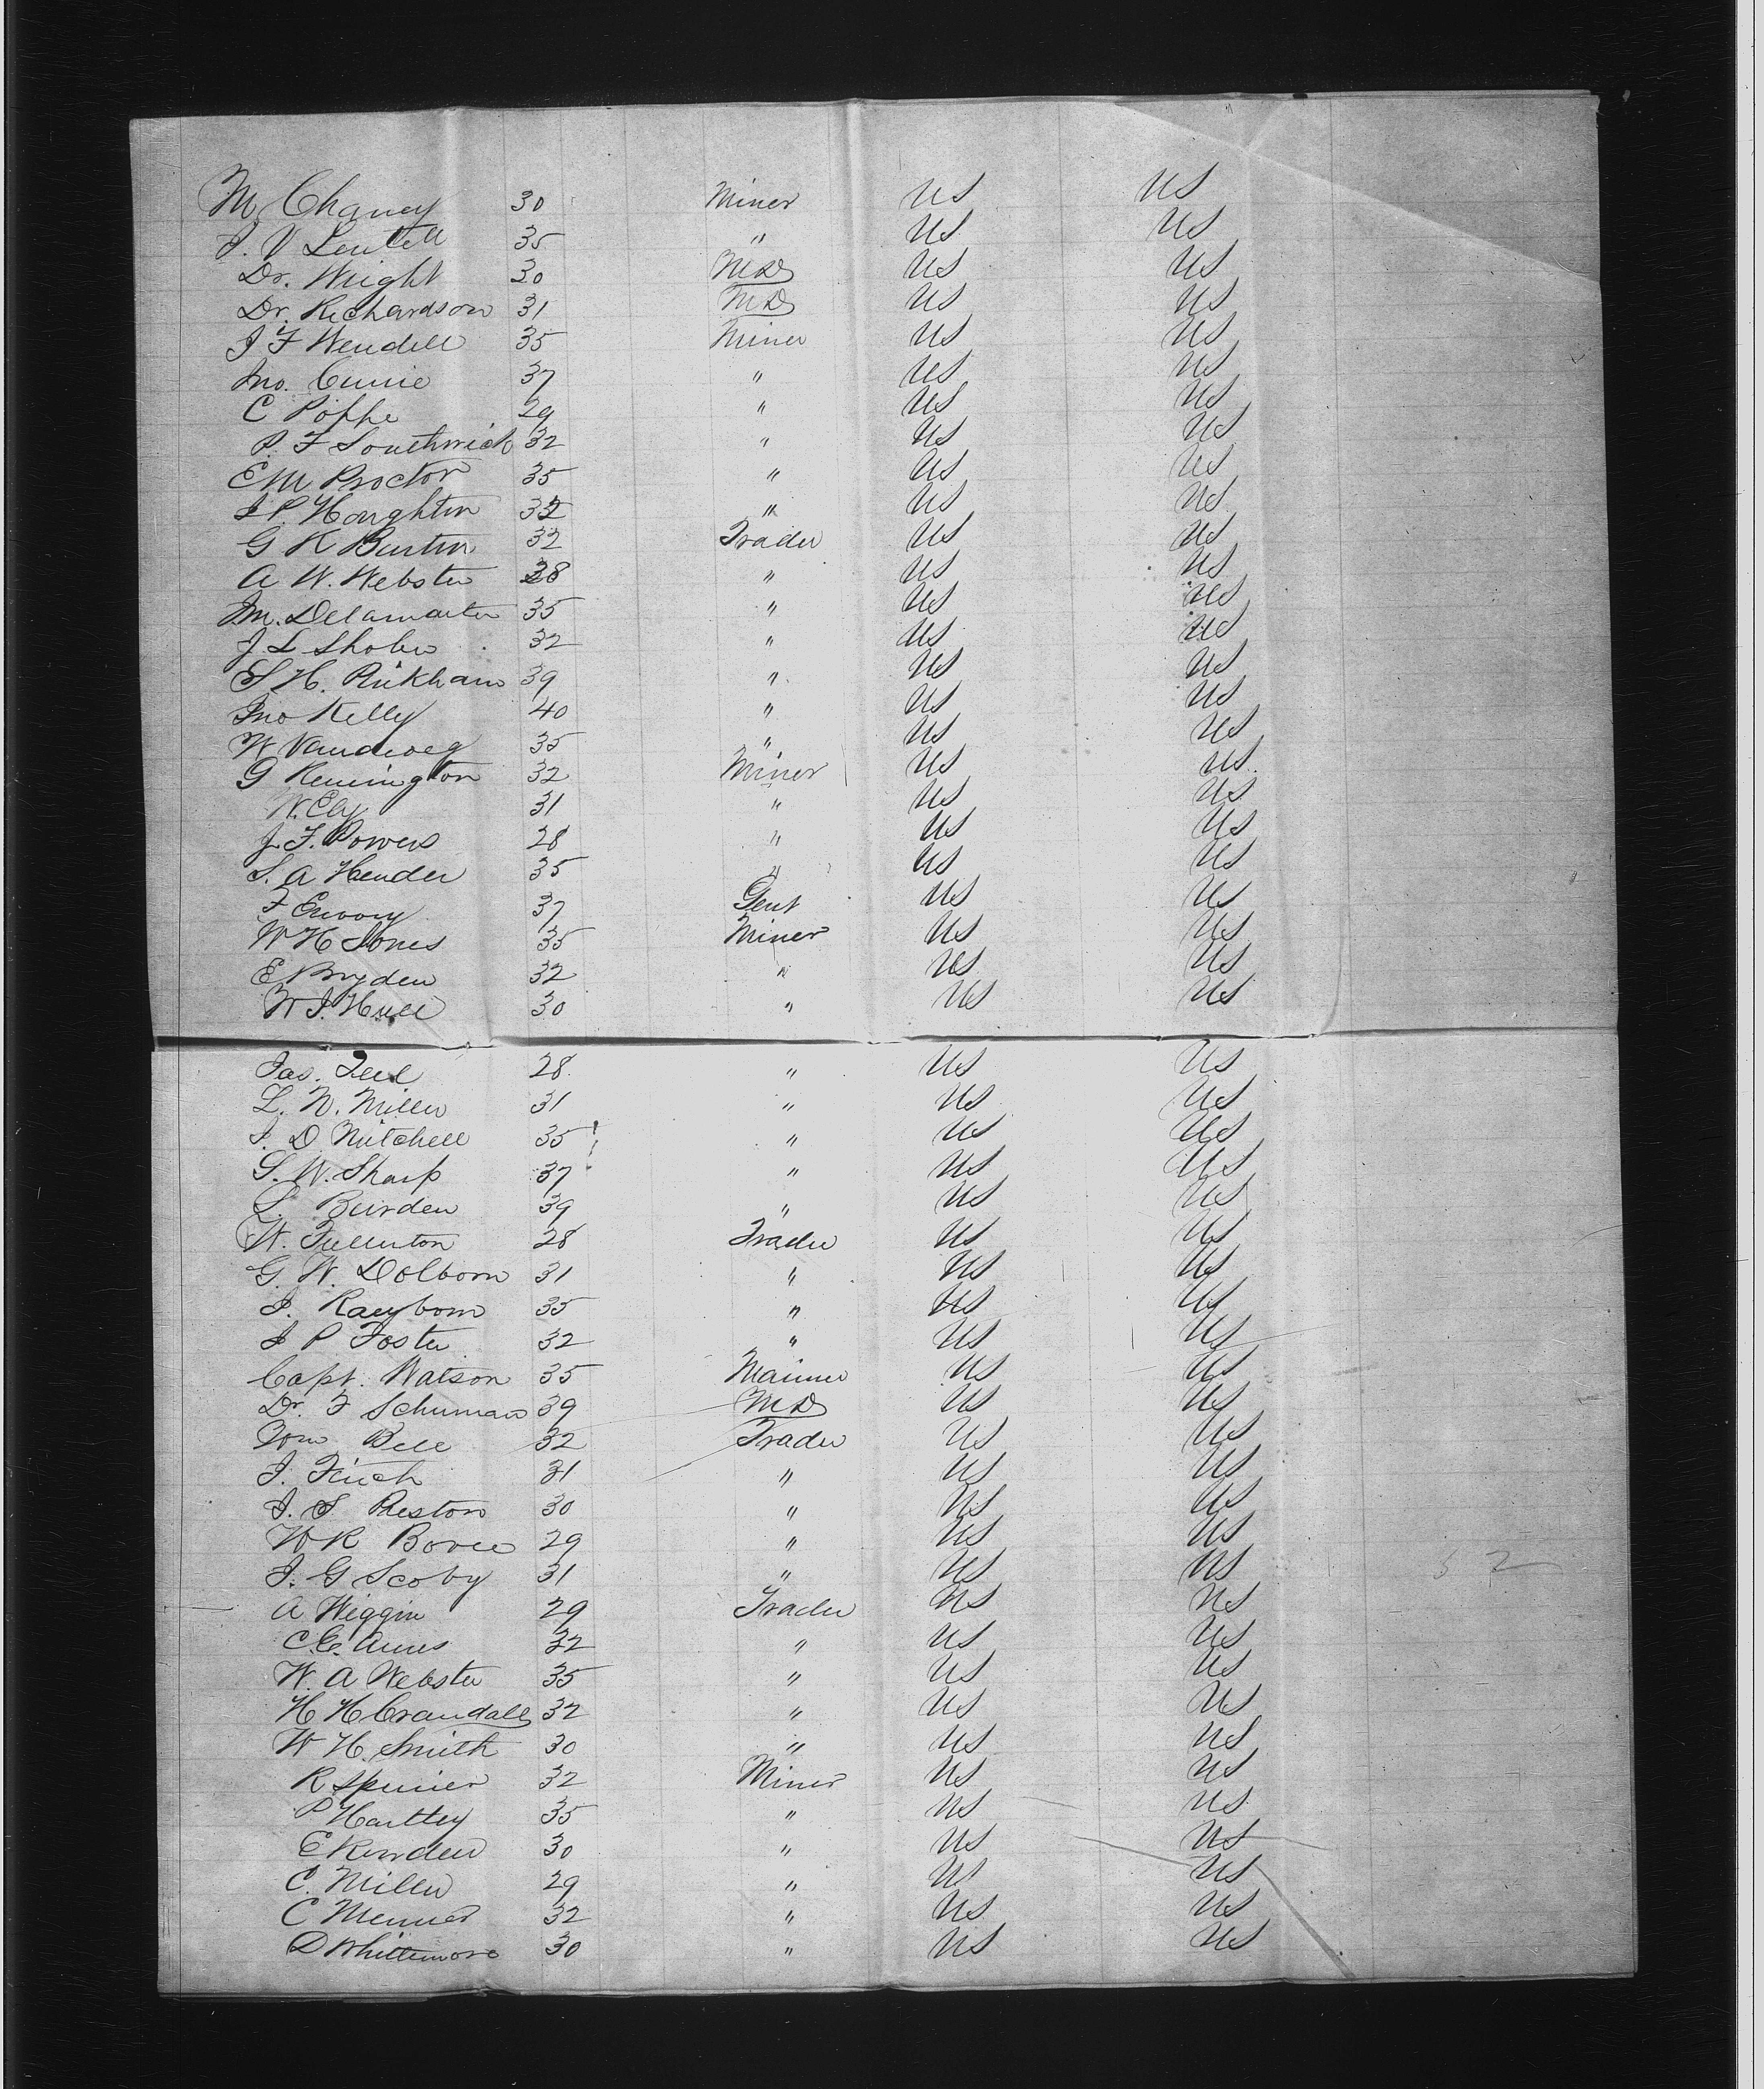 M. Chaney 30 Miner US US
J. V Lentell 35 " US US
Dr. Wright 30 MD US US
Dr. Richardson 31 MD US US
J F Wendell 35 Miner US US
Jno. Currie 37 " US US
C Poppe 29 " US US
P. F Southwick 32 " US US
E M Proctor 35 " US US
J P. Houghton 32 " US US
G K Burton 32 Trader US US
A W. Webster 28 " US US
Jm. Delamarter 35 " US US
J L Shober 32 " US US
S H. Rickham 39 " US US
Jno Kelly 40 " US US
W Vanderveeg 35 " US US
G Remington 32 Miner US US
W. Ely 31 " US US
J. F. Powers 28 " US US
S. A Hender 35 " US US
F 37 Gent US US
W H Jones 35 Miner US US
E Bryden 32 " US US
W J. Hull 30 " US US
Jas. Teel 28 " US US
L. N. Miller 31 " US US
J. D Mitchell 35 " US US
S. W. Sharp 37 " US US
L. Burden 39 " US US
W. Fullerton 28 Trader US US
G. W. Dolborn 31 " US US
J. Rayborn 35 " US US
J P Foster 32 " US US
Capt. Watson 35 Mariner US US
Dr. F Schuman 39 MD US US
Tom Bell 32 Trader US US
J. Finch 31 " US US
J. S Preston 30 " US US
W R Bovee 29 " US US
J. G Scoby 31 " US US 52
A Wiggin 29 Trader US US
C. E. Annis 32 " US US
W. A Webster 35 " US US
H H Crandall 32 " US US
W H. Smith 30 " US US
R Spenier 32 Miner US US
P Hartley 35 " US US
E 30 " US US
C. Miller 29 " US US
C Menner 32 " US US
D Whittemore 30 " US US